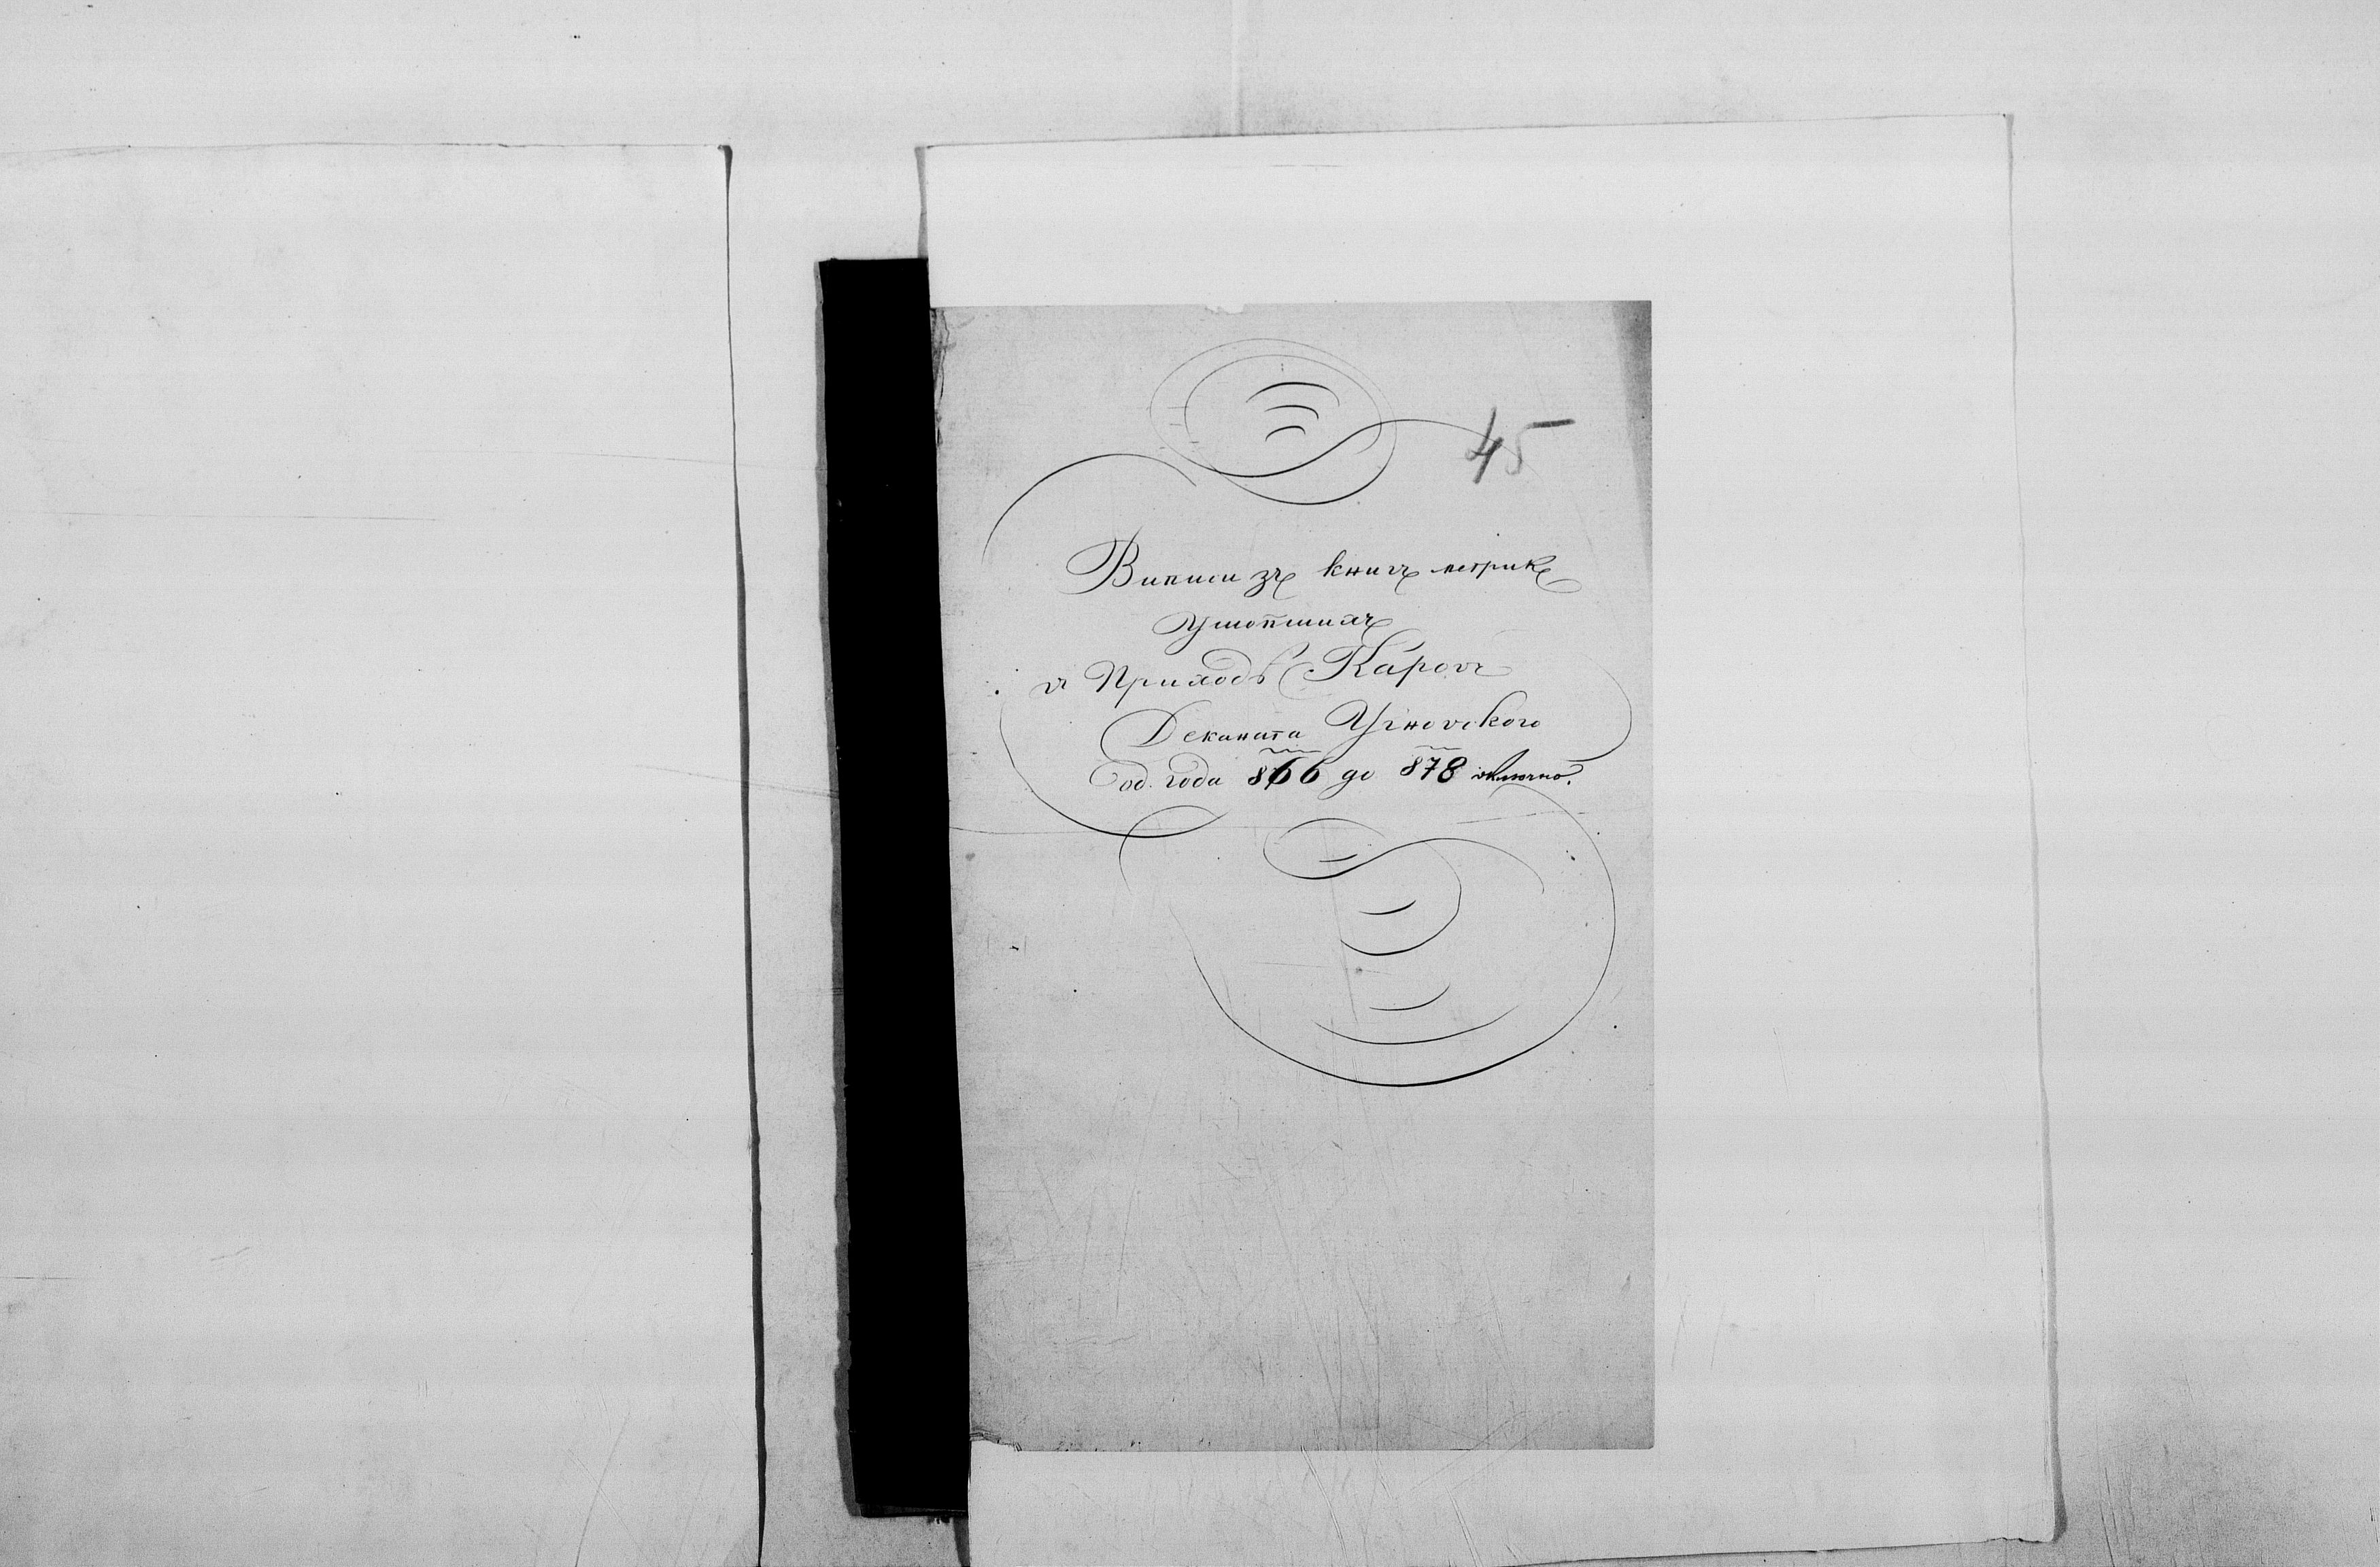 45
Виписи зъ книгъ метрикъ
Умопшихъ
в Приходѣ Каровъ
Деканата Угновского
од года 866 до 878 включно.